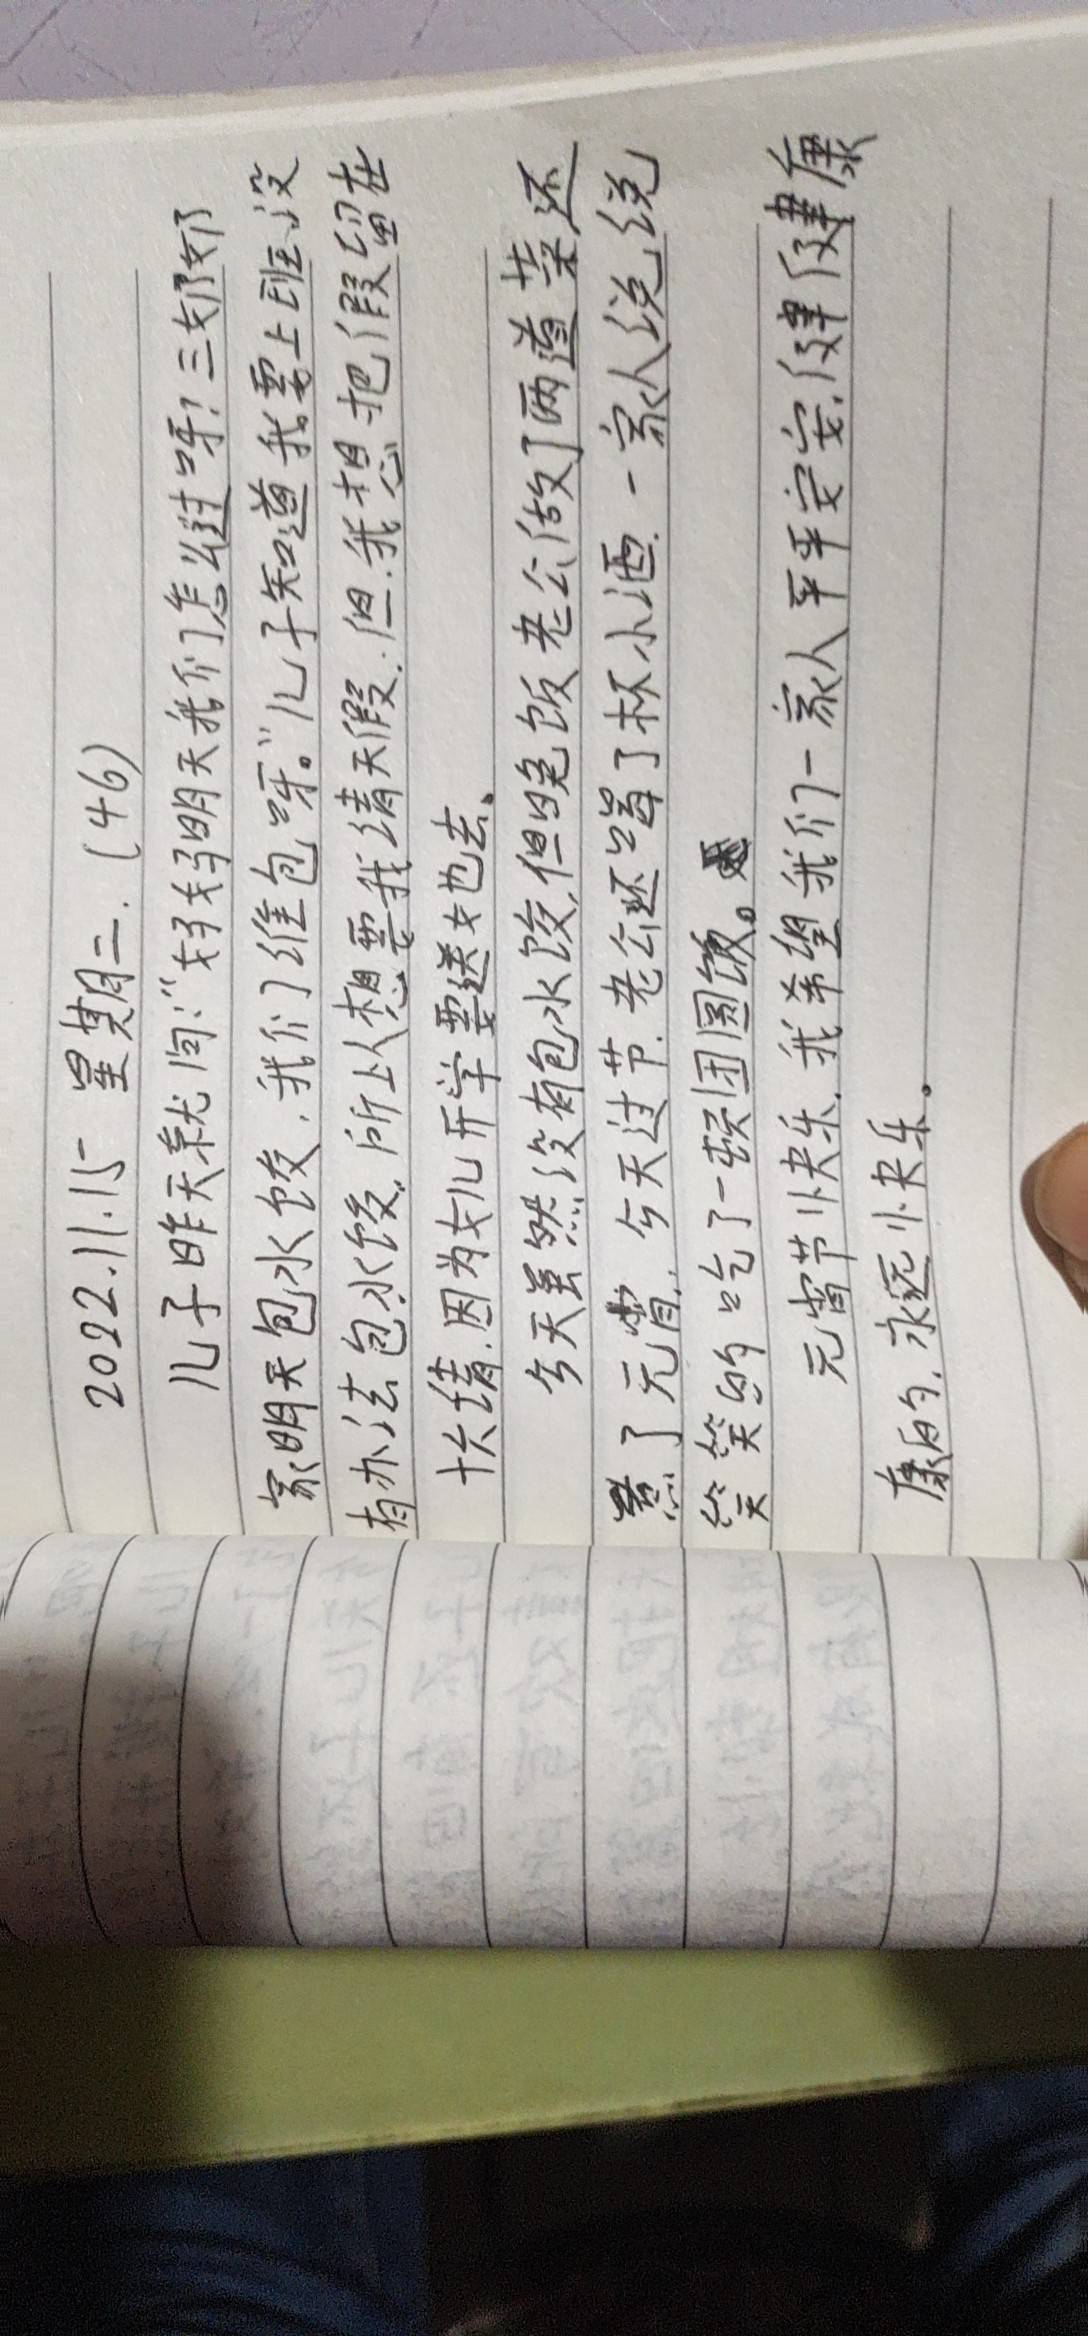 2022.11.15 星期二.(46)
儿子昨天就问:“妈妈明天我们怎么过呀?三奶奶
家明天包水饺,我们谁包呀。”儿子知道我要上班没
有办法包水饺,所以想要我请天假.但.我想把假留在
十六请.因为女儿开学要送她去。
今天虽然没有包水饺,但晚饭老公做了两道菜还
煮了元宵.今天过节.老公还喝了杯小酒.一家人说说
笑笑的吃了一顿团圆饭。
元宵节快乐.我希望我们一家人平平安安.健健康
康的.永远快乐。